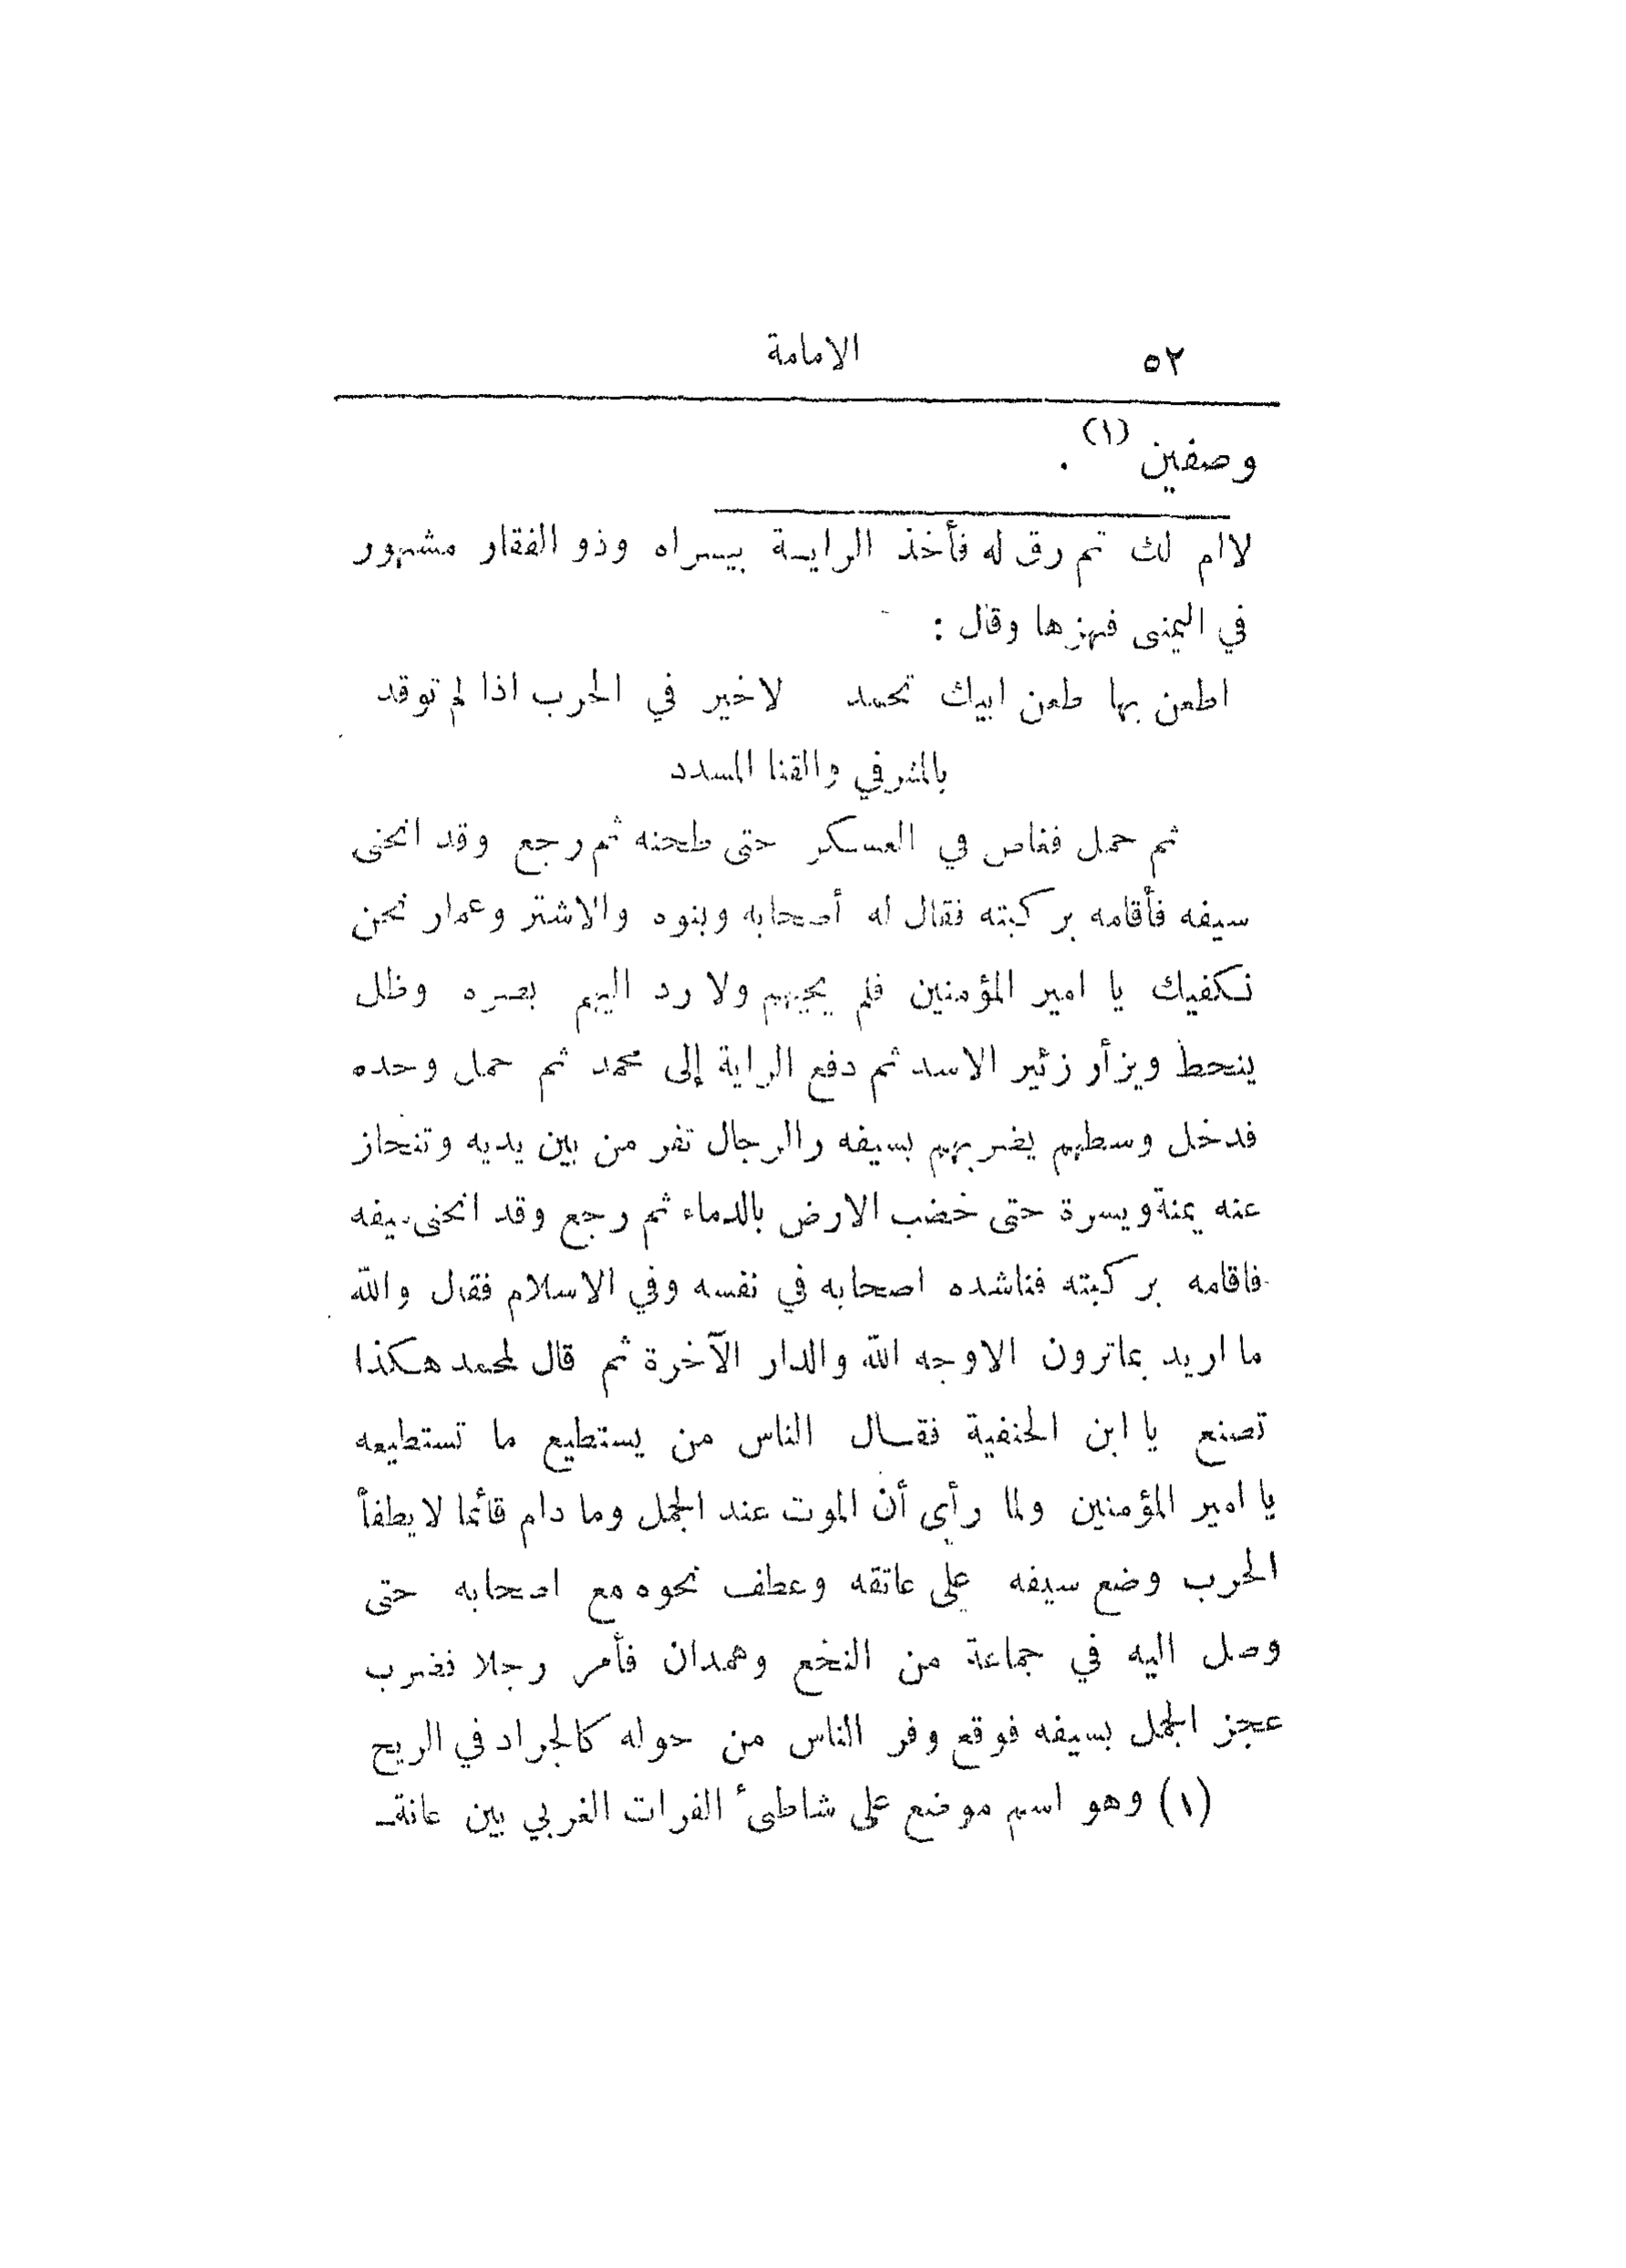 ٥٢ الامامة
وصفين (١) .
لاام لك ثم رق له فأخذ الرايـة بيسراه وذو الفقار مشهور
في اليمنى فهزها وقال :
اطعن بها طعن ابيك تحمد لاخير في الحرب اذا لم توقد
بالمشرفي والقنا المسدد
ثم حمل فغاص في العسكر حتى طحنه ثم رجع وقد انحنى
سيفه فأقامه بركبته فقال له أصحابه وبنوه والاشتر وعمار نحن
نكفيك يا امير المؤمنين فلم يجبهم ولا رد اليهم بصره وظل
ينحط ويزأر زئير الاسد ثم دفع الراية إلى محمد ثم حمل وحده
فدخل وسطهم يضربهم بسيفه والرجال تفر من بين يديه وتنحاز
عنه يمنة ويسرة حتى خضب الارض بالدماء ثم رجع وقد انحنى سيفه
فاقامه بركبته فناشده اصحابه في نفسه وفي الاسلام فقال والله
ما اريد بماترون الاوجه الله والدار الآخرة ثم قال لمحمد هكذا
تصنع يا ابن الحنفية فقـال الناس من يستطيع ما تستطيعه
يا امير المؤمنين ولما رأى أن الموت عند الجمل وما دام قائما لايطفأ
الحرب وضع سيفه على عاتقه وعطف نحوه مع اصحابه حتى
وصل اليه في جماعة من النخع وهمدان فأمر رجلا فضرب
عجز الجمل بسيفه فوقع وفر الناس من حوله كالجراد في الريح
(١) وهو اسم موضع على شاطىء الفرات الغربي بين عانةـ